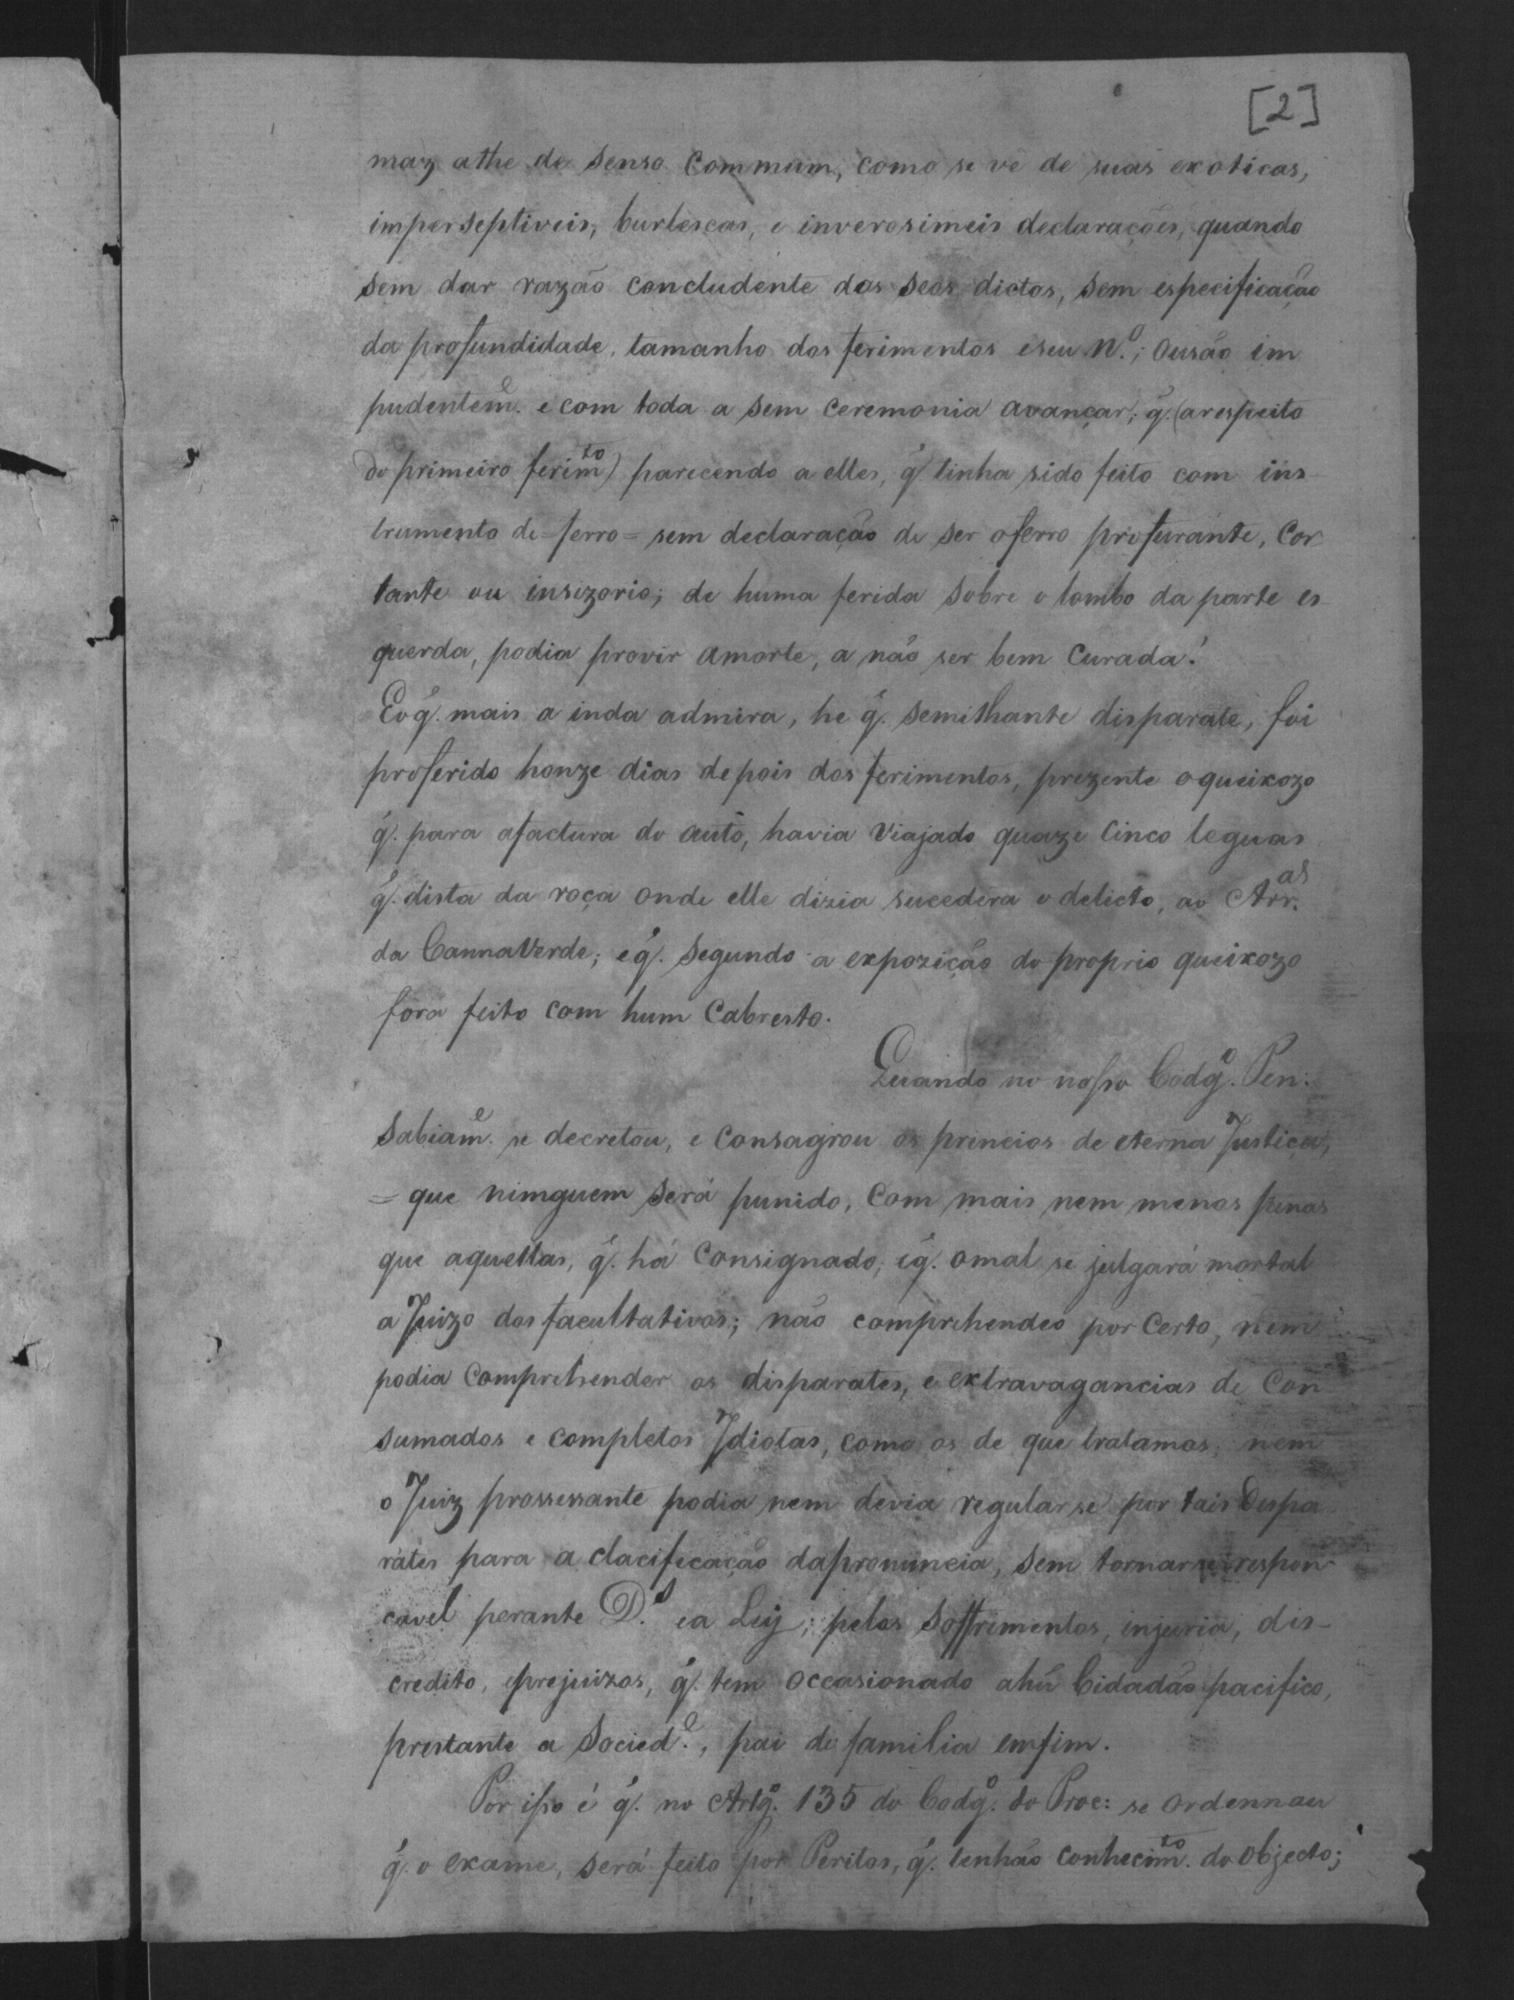 [2]
maz athe de Senso Commum, como se vê de suas exoticas,
imperseptiveis, burlescas, e inverosimeis declarações, quando
sem dar razão concludente dos seos dictos, sem especificação
da profundidade, tamanho dos ferimentos eseu N.º; Ousão im
pudentem.e e com toda a sem ceremonia avançar; q̃. (arespeito
do primeiro ferim.to) parecendo a elles, q̃ tinha sido feito com ins-
trumento de=ferro= sem declaração de ser oferro profurante, Cor
tante ou insizorio; de huma ferida sobre o lombo da parte es-
querda, podia provir amorte, a não ser bem Curada!
Eoq̃. mais a inda admira, he q̃. Semilhante disparate, foi
proferido honze dias depois dos ferimentos, prezente oqueixozo
q̃. para afactura do auto, havia Viajado quaze Cinco leguas
q̃. dista da roça onde elle dizia sucedêra o delicto, ao Arr.al
da CannaVerde; eq̃. Segundo a expozição do proprio queixozo
fora feito com hum Cabresto.
Quando no nosso Codg.º Pen:
Sabiam.e se decretou, e Consagrou os princios de eterna Justiça,
= que nimguem será punido, Com mais nem menos penas
que aquellas, q̃. há Consignado, eq̃. omal se julgará mortal
a Juizo dos facultativos; não comprehendeo por Certo, nem
podia Comprehender os disparates, e extravagancias de Con
sumados e completos Idiotas, como os de que tratamos, nem
o Juiz prossessante podia nem devia regularse por tais Dispa
rates para a clacificação dapronuncia, sem tornarse irrespon
cavel perante D.s ea Ley, pelos Soffrimentos, injuria, dis-
credito, eprejuizos, q̃. tem occasionado ahũ Cidadão pacifico,
prestante a Socied.e, pai de familia emfim.
Por isso é q̃. no Artg.º 135 do Codg.º do Proc: se Ordennau
q̃. o exame, será feito por Peritos, q̃. tenhão conhecim.to do objecto;